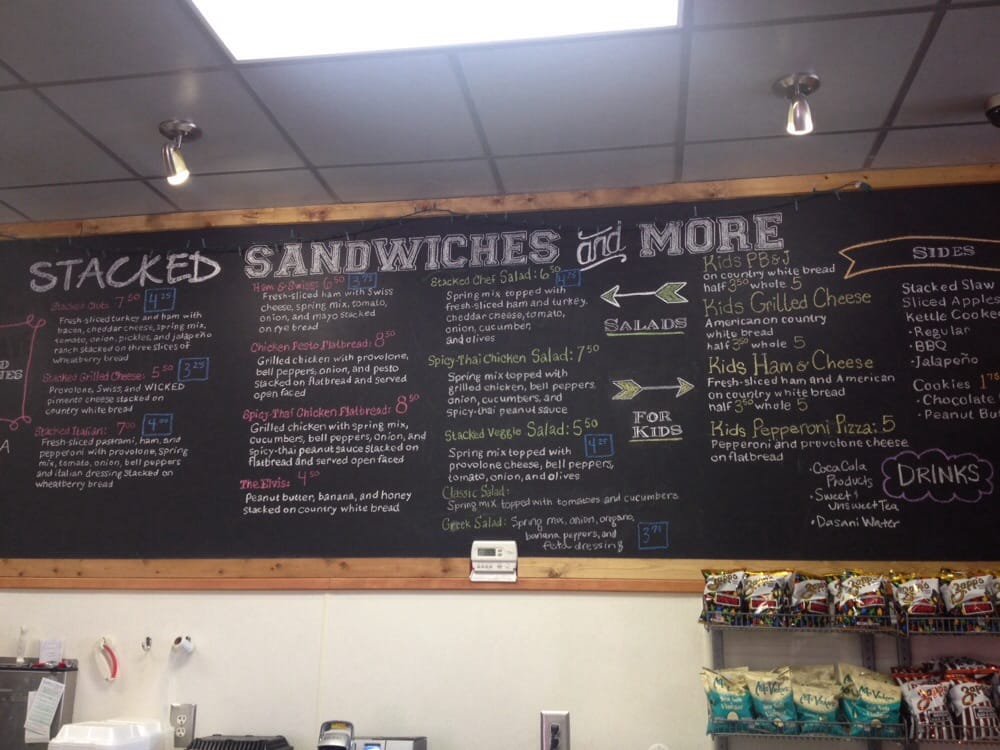 STACKED SANDWICHES and MORE
Stacked Club: 7.50 4.25
Fresh-sliced turkey and ham with
bacon, cheddar cheese, spring mix,
tomato, onion, pickles, and jalapeño
ranch stacked on three slices of
wheatberry bread
Stacked Grilled Cheese: 5.50 3.25
Provolone, Swiss, and WICKED
pimento cheese stacked on
country white bread
Stacked Italian: 7.00 4.00
Fresh-sliced pastrami, ham, and
pepperoni with provolone, spring
mix, tomato, onion, bell peppers
and italian dressing stacked on
wheatberry bread
Ham & Swiss: 6.50 3.75
Fresh-sliced ham with Swiss
cheese, spring mix, tomato,
onion, and mayo stacked
on rye bread
Chicken Pesto Flatbread: 8.50
Grilled chicken with provolone,
bell peppers, onion, and pesto
stacked on flatbread and served
open faced
Spicy-Thai Chicken Flatbread: 8.50
Grilled chicken with spring mix,
cucumbers, bell peppers, onion, and
spicy-thai peanut sauce stacked on
flatbread and served open faced
The Elvis: 4.50
Peanut butter, banana, and honey
stacked on country white bread
Stacked Chef Salad: 6.50 4.25
Spring mix topped with
fresh-sliced ham and turkey,
cheddar cheese, tomato,
onion, cucumber,
and olives
Spicy-Thai Chicken Salad: 7.50
Spring mix topped with
grilled chicken, bell peppers,
onion, cucumbers, and
spicy-thai peanut sauce
Stacked Veggie Salad: 5.50
Spring mix topped with 4.25
provolone cheese, bell peppers,
tomato, onion, and olives
Classic Salad:
Spring mix topped with tomatoes and cucumbers
Greek Salad: Spring mix, onion, oregano,
banana peppers, and 3.75
feta dressing
SALADS
FOR
KIDS
Kids PB&J
on country white bread
half 3.50 whole 5
Kids Grilled Cheese
American on country
white bread
half 3.50 whole 5
Kids Ham & Cheese
Fresh-sliced ham and American
on country white bread
half 3.50 whole 5
Kids Pepperoni Pizza: 5
Pepperoni and provolone cheese
on flatbread
SIDES
Stacked Slaw
Sliced Apples
Kettle Cooke
• Regular
• BBQ
• Jalapeño
Cookies 1.75
• Chocolate
• Peanut Bu
DRINKS
• Coca Cola
Products
• Sweet &
Unsweet Tea
• Dasani Water
Zapp's
Zapp's
Miss Vickie's
Zapp's